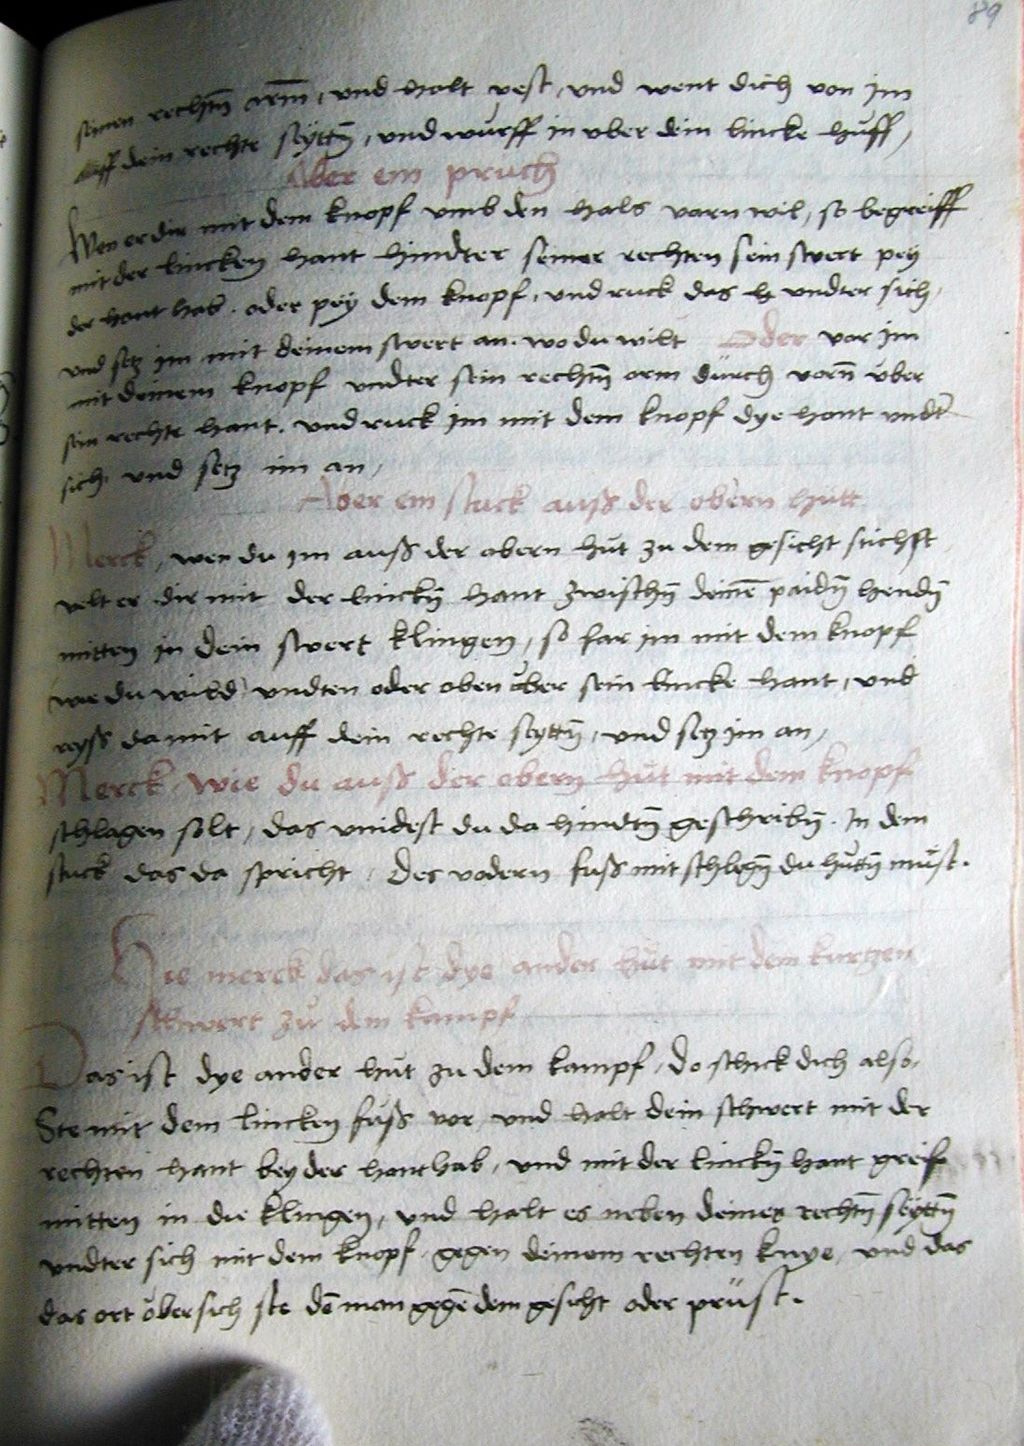 89
seinen rechtñ arm, und halt vest, und went dich von jm
auff dein rechte seÿttñ, und wurff in vber dein lincke hüff,
Aber ein pruch
Wen er dir mit dem knopf vmb den hals varn wil, so begreiff
mit der lincken hant hindter seiner rechten sein swert peÿ
der hant hab. oder peÿ dem knopf, und ruck das h undter sich,
vnd setz im mit deinem swert an. wo du wilt Oder var jm
mit deinem knopf undter sein rechtñ orm dürch vorñ über
sein rechte hant. und ruck jm mit dem knopf dye hant undt
sich und setz im an,
Aber ein stuck auß der obern hütt
Merck, wen du jm auß der obern hüt zu dem gesicht stichst
velt er dir mit der linckñ hant zwischñ deinē paidñ hendñ
mitten in dein swert klingen, so far im mit dem knopf
wie du wild undten oder oben über sein lincke hant, und
reyß da mit auff dein rechte seyttñ, und setz im an,
Merck wie du auß der obern hüt mit dem knopf
schlagen solt, das vindest du da hindtñ geschribñ. In dem
stuck das da spricht, Des vodern fuß mit schlegñ du hüttñ müst.
Hie merck das ist dye ander hüt mit dem kurtzen
schwert zu dem kampf
Das ist dye ander hüt zu dem kampf, do schick dich also,
Ste mit dem lincken füß vor, und halt dein schwert mit der
rechten hant bey der hant hab, und mit der linckñ hant greif
mitten in die klingen, und halt es neben deiner rechtñ seÿttñ
undter sich mit dem knopf gegen deinem rechten knye, und das
das ort über sich ste dē man gegē dem gesicht oder prüst.